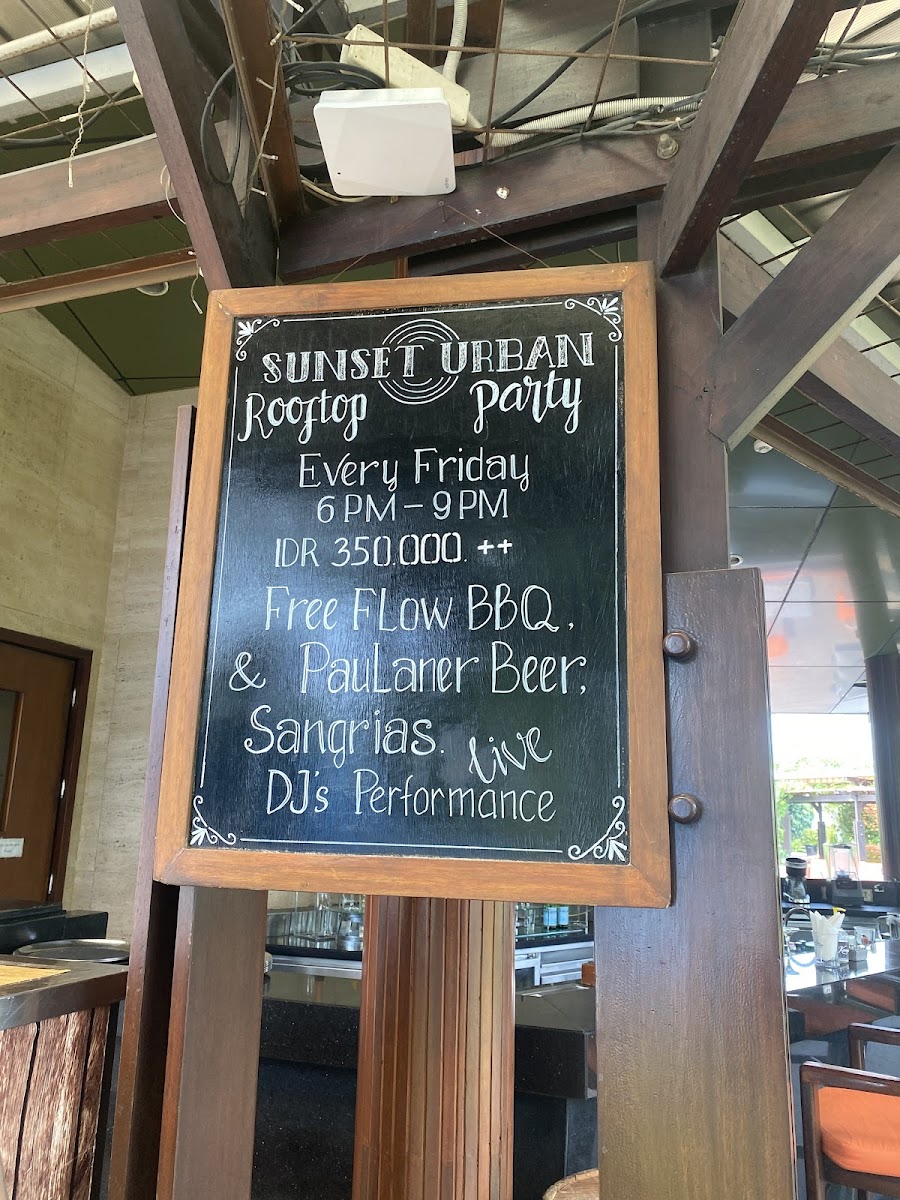 SUNSET URBAN
Rooftop Party
Every Friday
6 PM – 9 PM
IDR 350.000. ++
Free FLow BBQ,
& PauLaner Beer,
Sangrias. Live
DJ's Performance